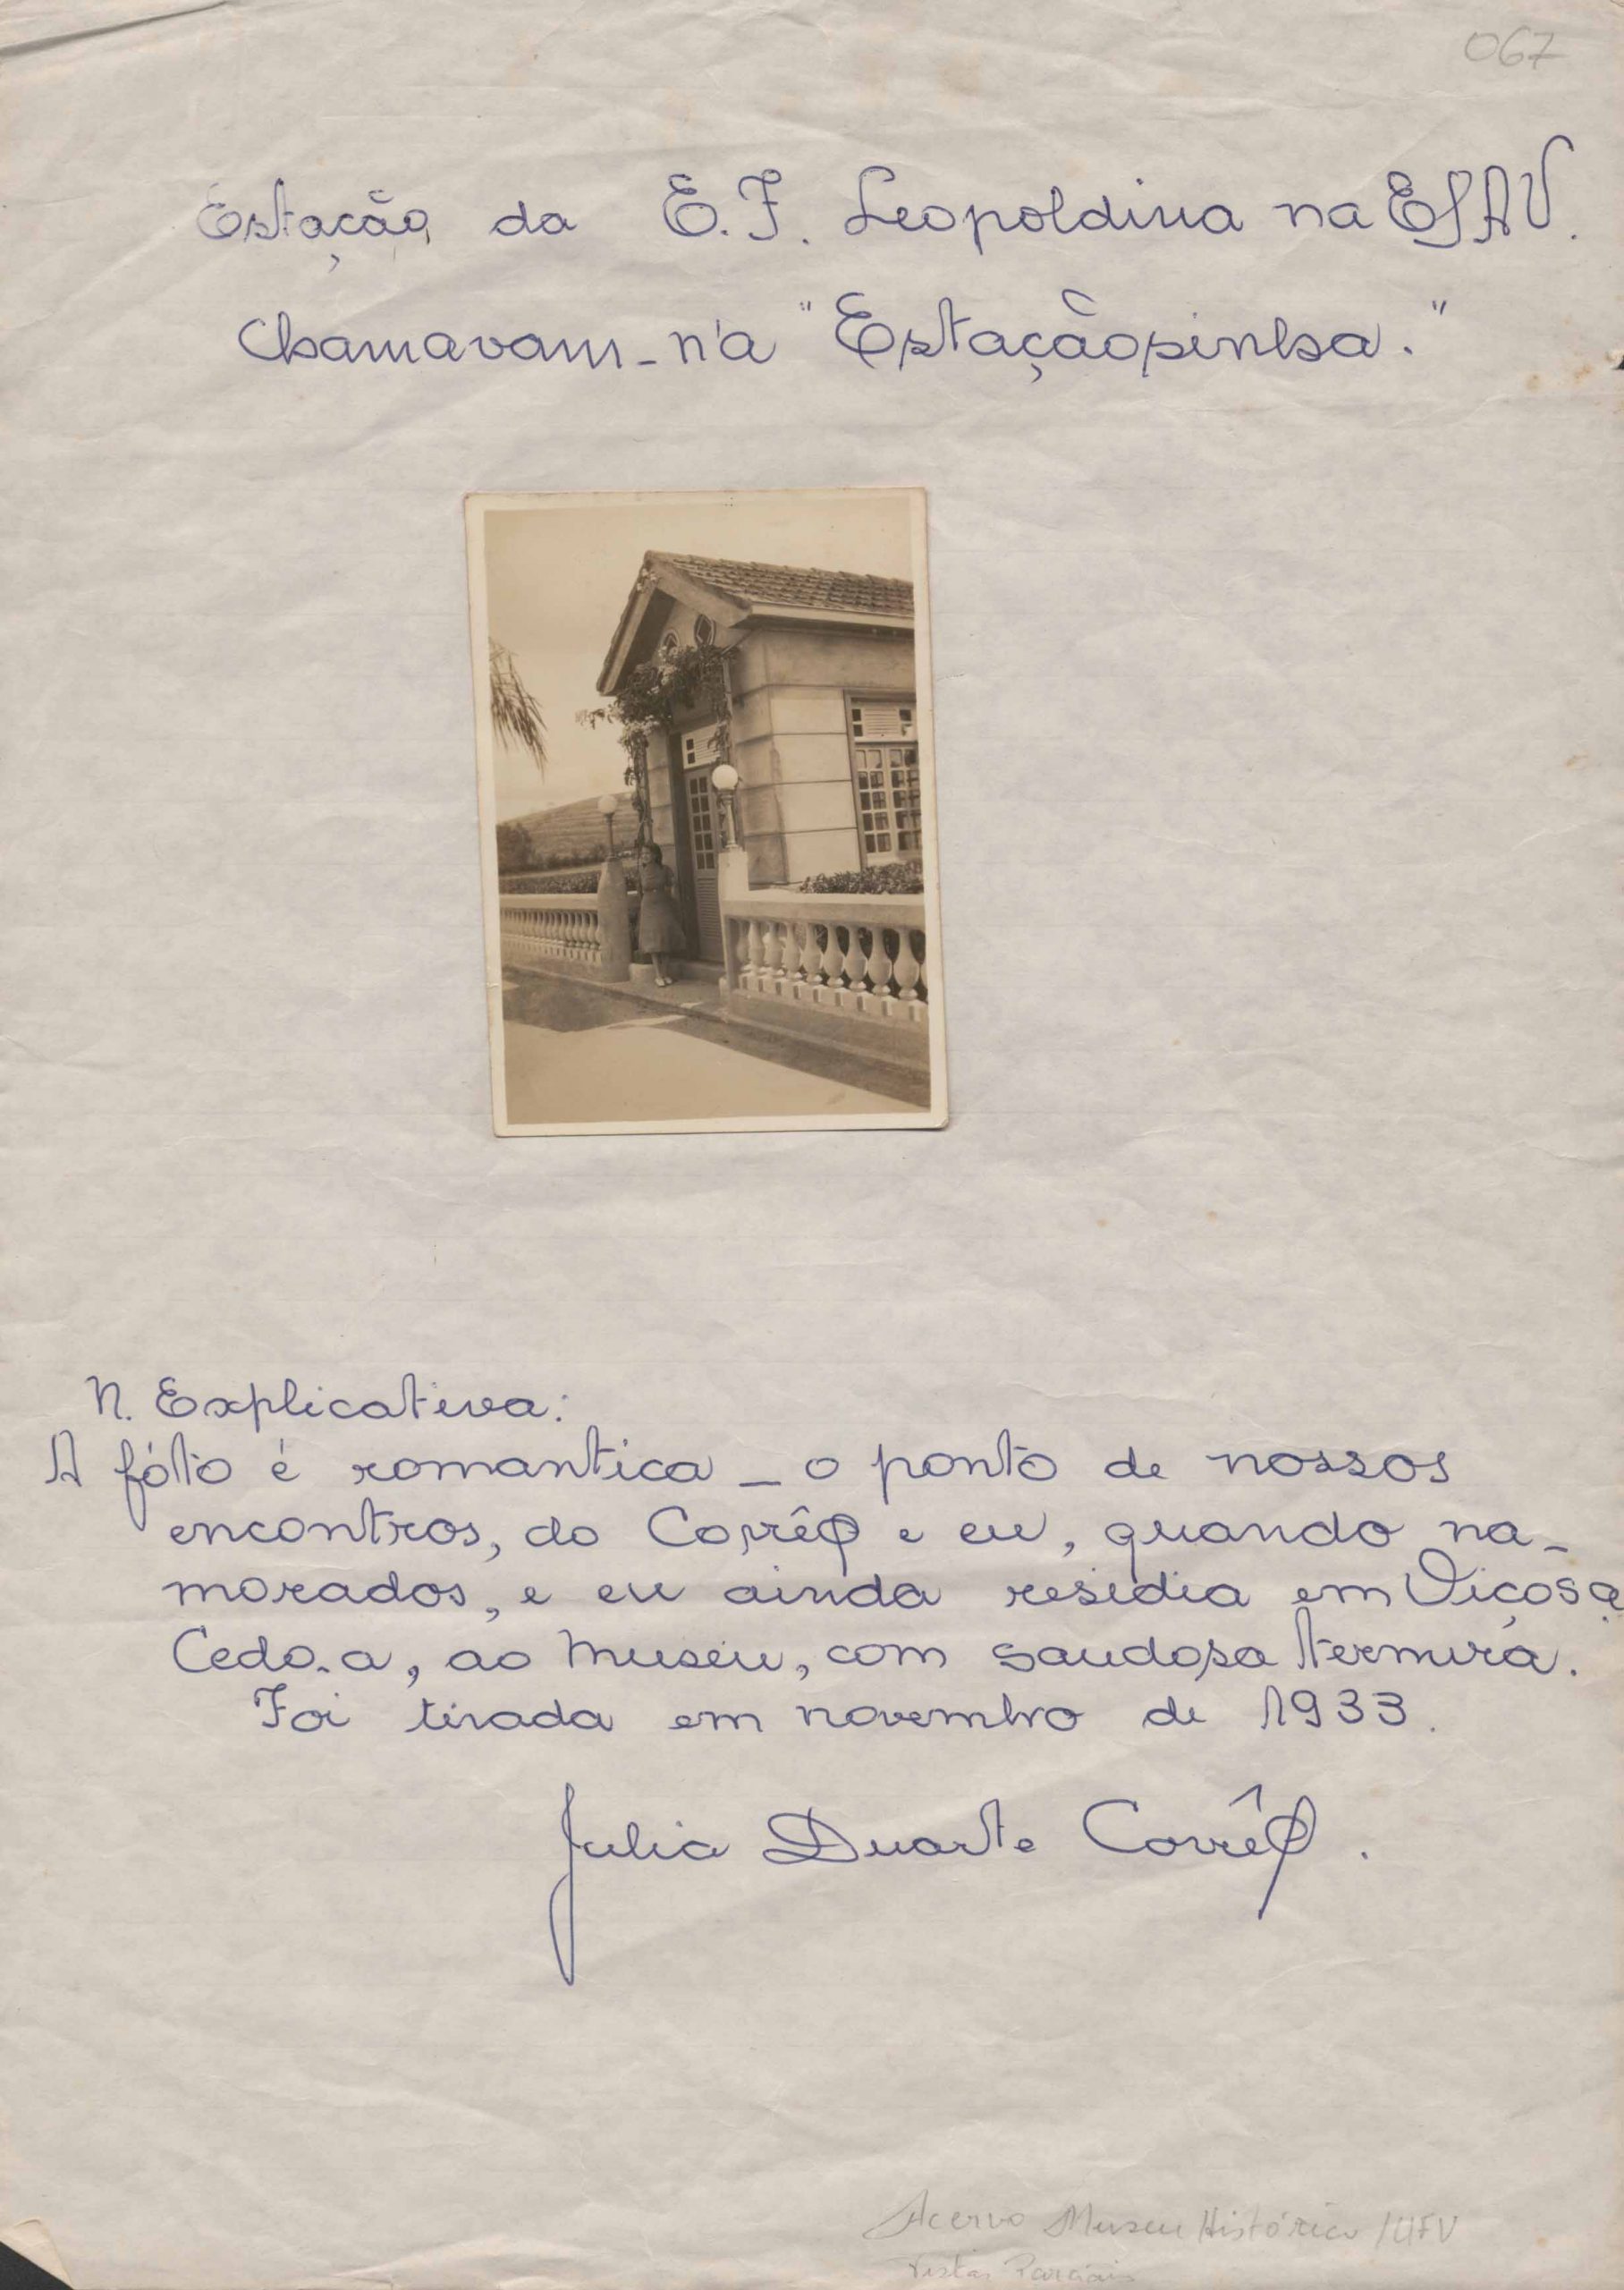 067
Estação da E.F. Leopoldina na ESAV.
Chamavam-n'a "Estaçãosinha."
N. Explicativa:
A fóto é romantica - o ponto de nossos
encontros, do Corrêa e eu, quando na-
morados, e eu ainda residia em Viçosa.
Cedo-a, ao Museu, com saudosa ternura.
Foi tirada em novembro de 1933.
Julia Duarte Corrêa.
Acervo Museu Histórico / UFV
Vistas Parciais